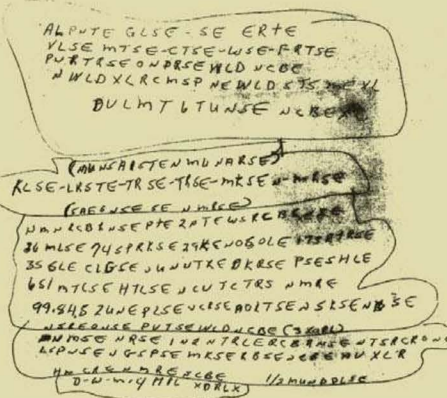 ALPNTE GLSE-SE ERTE
VLSE MTSE-CTSE-WSE-FRTSE
PVRTRSEONDRSEWLD NCBE
NWLDXLRCMSP NEWLDSTSMEXL
DULMT6TUNSE NCBEXC
(MUNSAISTENMUNARSE)
KLSE-LRSTE-TRSE-TRSE-MKSEN-MRSE
(SAEGNSESE NMBSE)
NMNRCBRNSEPTE2PTEWSRCBRNSE
36MLSE 74SPRKSE29KENOSOLE
35GLE CLGSEUNUTXEDKRSE PSESHLE
651MTCSE HTLSENCUTCTRS NMRE
99.84S52UNEPLSENCRSEAOLTSENSKSENBSE
NSREONSE PUTSEWLDNCBE(3XORL)
LSPNSENGSPSE MKSERBSENCBEAUXLR
HMCRENMRENCBE
D-W-M-14 MIL XDRLX
1/2MUNDDLSE